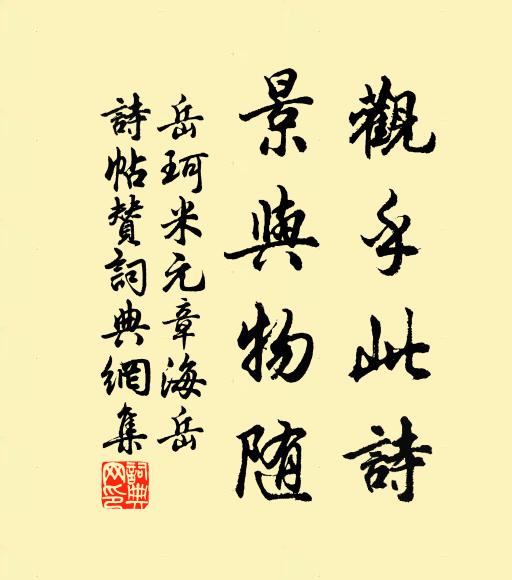 觀乎此詩
景與物随
岳珂米元章海岳
詩帖赞詞典網集